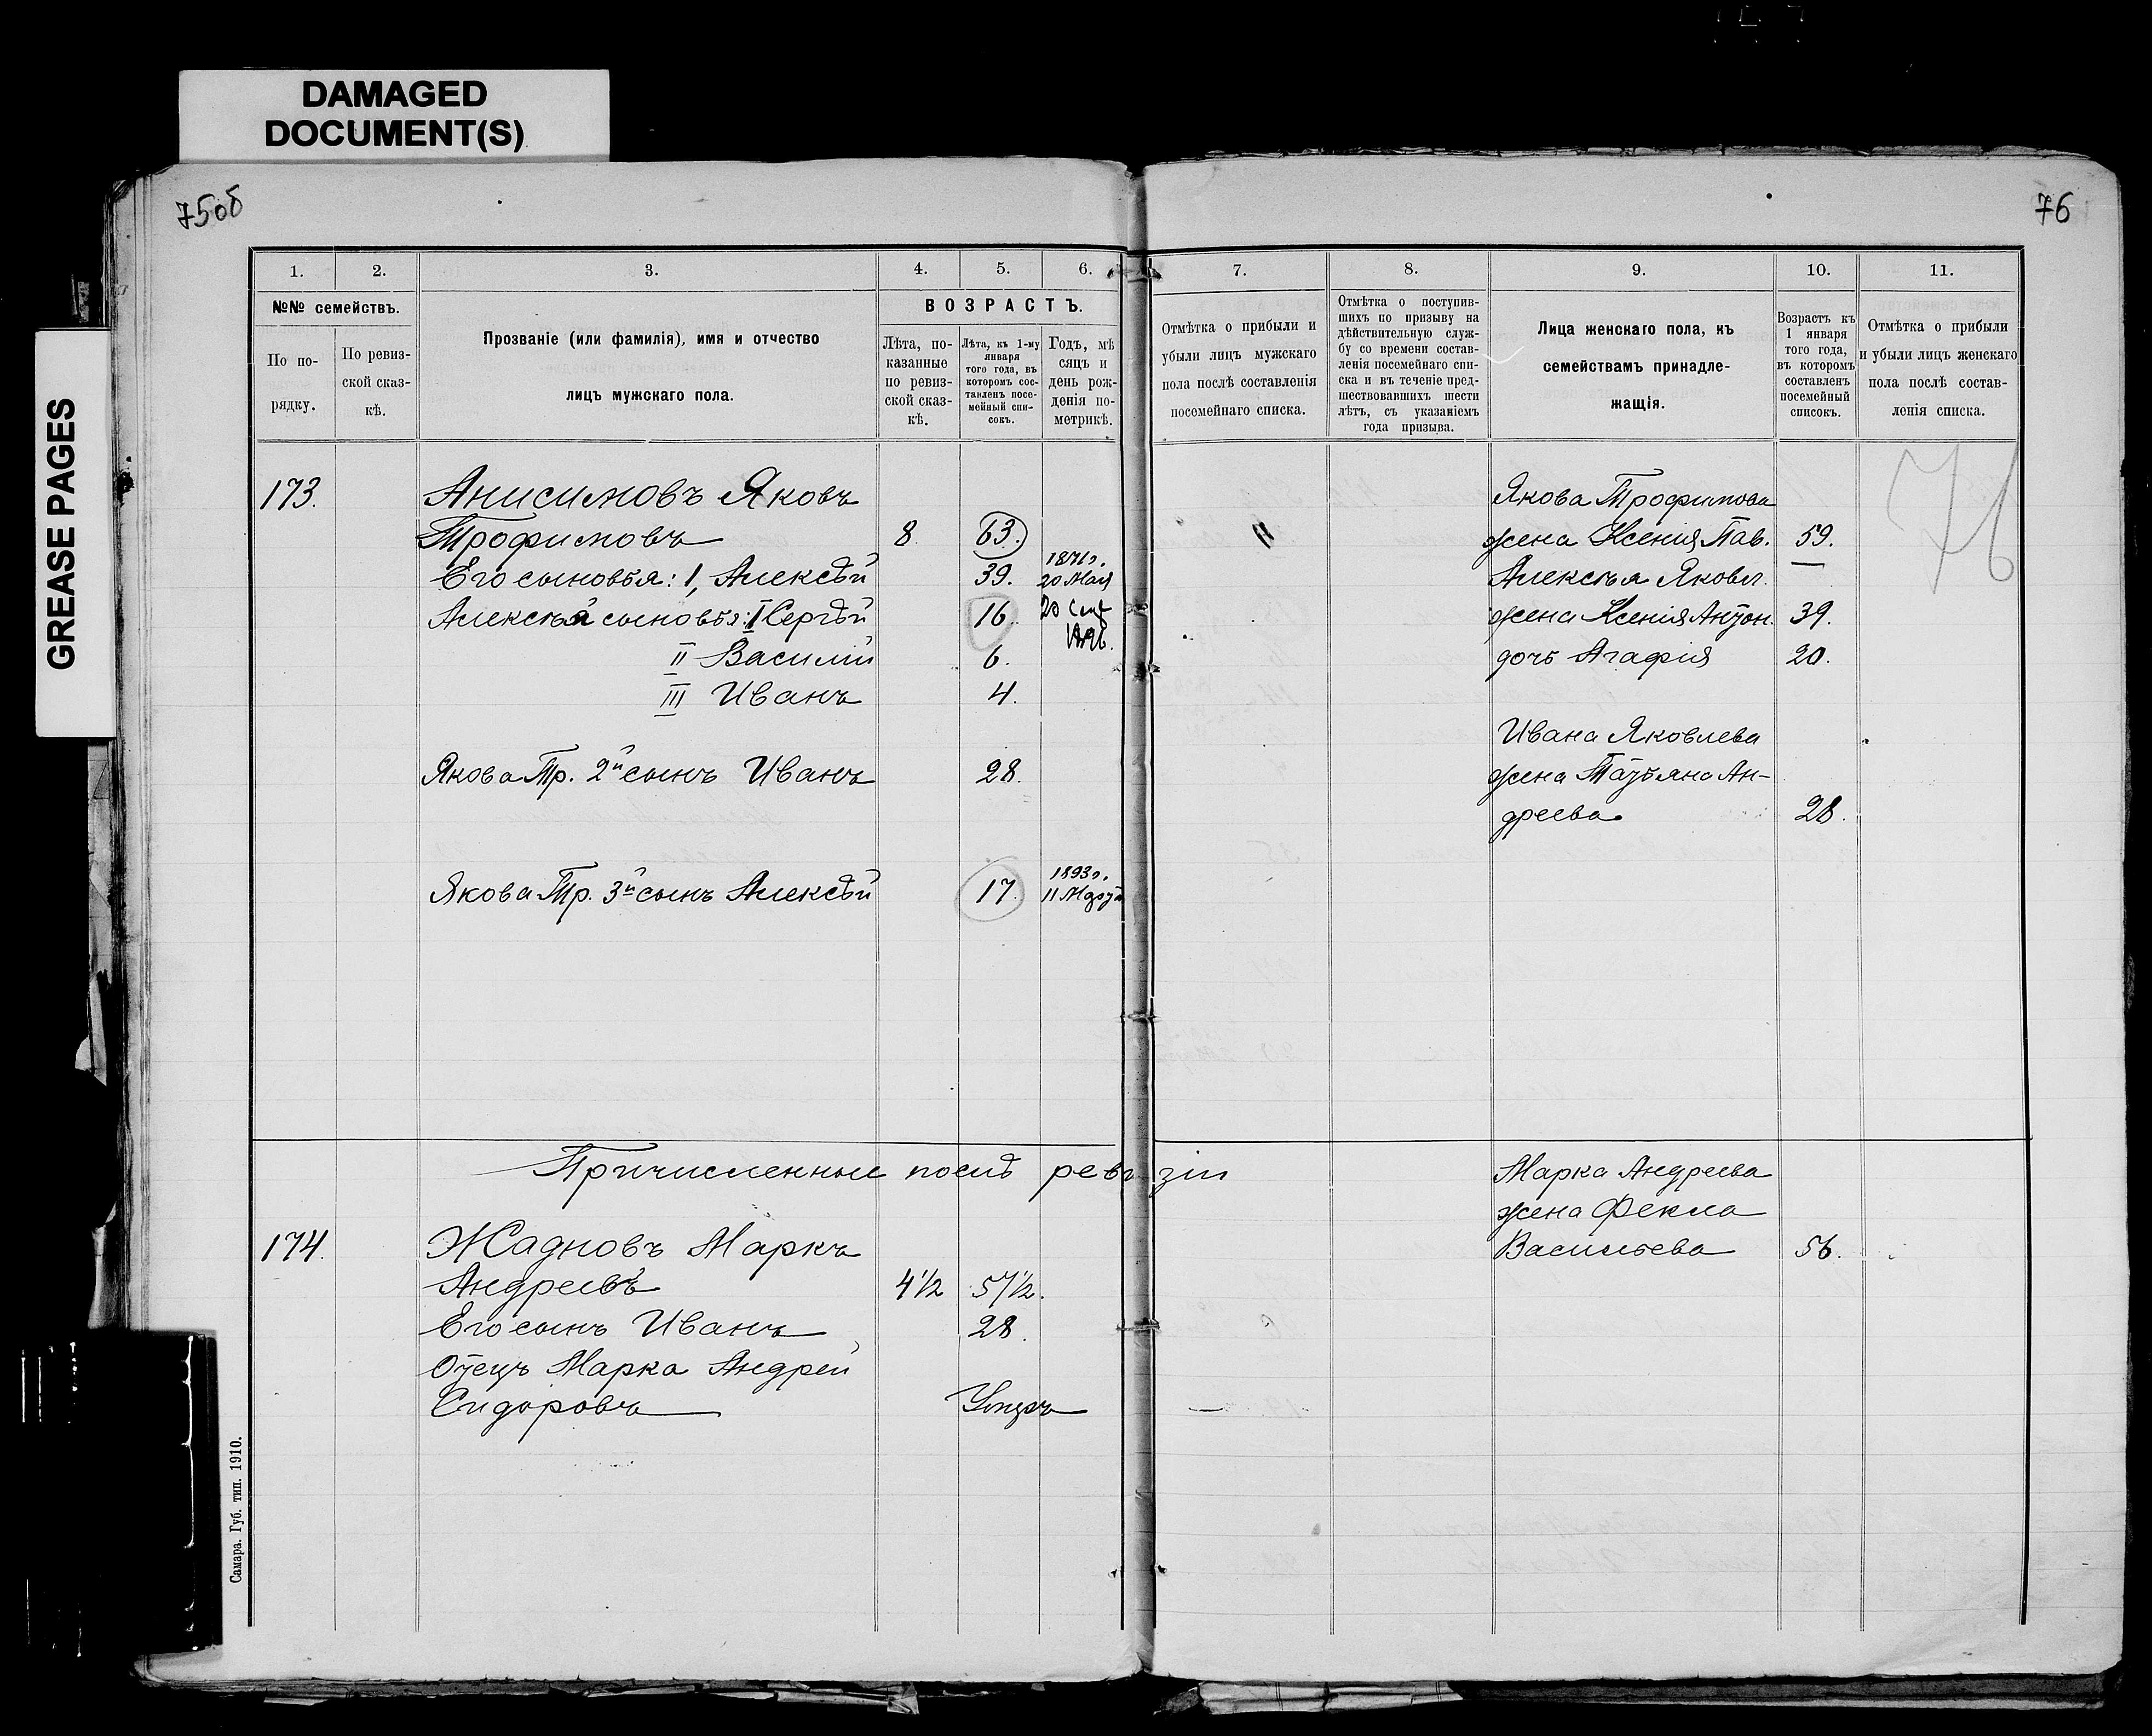 DAMAGED
DOCUMENT(S)
GREASE PAGES
75об
76
1.
2.
3.
4.
5.
6.
7.
8.
9.
10.
11.
№№ семействъ.
По по-
рядку.
По ревиз-
ской сказ-
кѣ.
Прозваніе (или фамилія), имя и отчество
лицъ мужскаго пола.
ВОЗРАСТЪ.
Лѣта, по-
казанные
по ревиз-
ской сказ-
кѣ.
Лѣта, къ 1-му
января
того года, въ
которомъ сос-
тавленъ посе-
мейный спи-
сокъ.
Годъ, мѣ
сяцъ и
день рож-
денія по-
метрикѣ.
Отмѣтка о прибыли и
убыли лицъ мужскаго
пола послѣ составленія
посемейнаго списка.
Отмѣтка о поступив-
шихъ по призыву на
дѣйствительную служ-
бу со времени состав-
ленія посемейнаго спи-
ска и въ теченіе пред-
шествовавшихъ шести
лѣтъ, съ указаніемъ
года призыва.
Лица женскаго пола, къ
семействамъ принадле-
жащія.
Возрастъ къ
1 января
того года,
въ которомъ
составленъ
посемейный
списокъ.
Отмѣтка о прибыли
и убыли лицъ женскаго
пола послѣ состав-
ленія списка.
76
173. Анисимовъ Яковъ
Трофимовъ 8. 63.
Его сыновья: 1, Алексѣй 39. 1871г. 20 Мая
Алексѣя сыновья: I Сергѣй 16. 20 Сент
II Василій 6.
III Иванъ 4.
Якова Тр. 2й сынъ Иванъ 28.
Якова Тр. 3й сынъ Алексѣй 17. 1893г. 11 Марта
Якова Трофимова
жена Ксенія Пав. 59.
Алексѣя Яковл.
жена Ксенія Антон. 39.
дочь Агафія 20.
Ивана Яковлева
жена Татьяна Ан-
дреева. 28.
Причисленные послѣ ревизіи
174. Жадновъ Маркъ
Андреевъ 4 1/2 57 1/2.
Его сынъ Иванъ 28.
Отецъ Марка Андрей
Сидоровъ Умеръ
Марка Андреева
жена Фекла
Васильева 56.
Самара. Губ. тип. 1910.